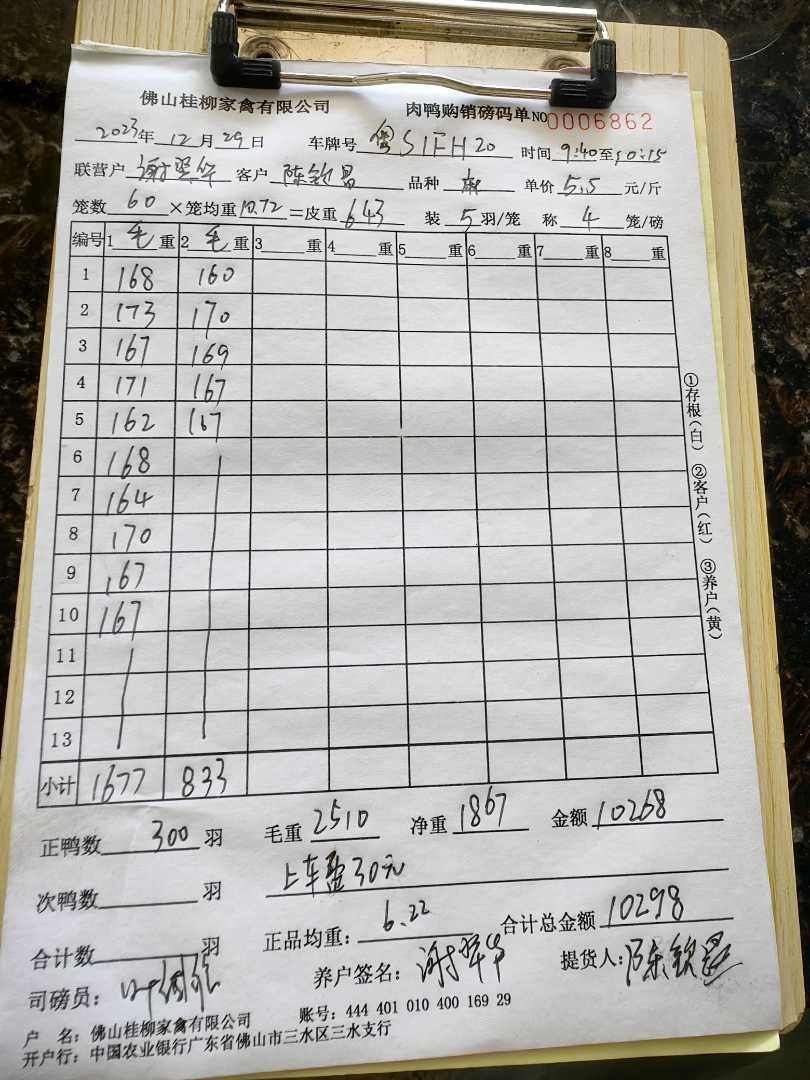 佛山桂柳家禽有限公司 肉鸭购销磅码单NO 0006862
2023年12月29日 车牌号 S1FH20 时间 9:40至10:15
联营户 谢翠华 客户 陈钦昌 品种 单价 5.5 元/斤
笼数 60 ×笼均重 10.72 =皮重 643 装 5 羽/笼 称 4 笼/磅
编号 1 毛 重 2 毛 重 3 重 4 重 5 重 6 重 7 重 8 重
1 168 160
2 173 170
3 167 169
4 171 167
5 162 167
6 168
7 164
8 170
9 167
10 167
11
12
13
小计 1677 833
正鸭数 300 羽 毛重 2510 净重 1867 金额 10268
次鸭数 羽 上车 30元
合计数 羽 正品均重: 6.22 合计总金额 10298
司磅员: 养户签名: 谢翠华 提货人: 陈钦昌
户 名: 佛山桂柳家禽有限公司 账号: 444 401 010 400 169 29
开户行: 中国农业银行广东省佛山市三水区三水支行
①存根(白) ②客户(红) ③养户(黄)